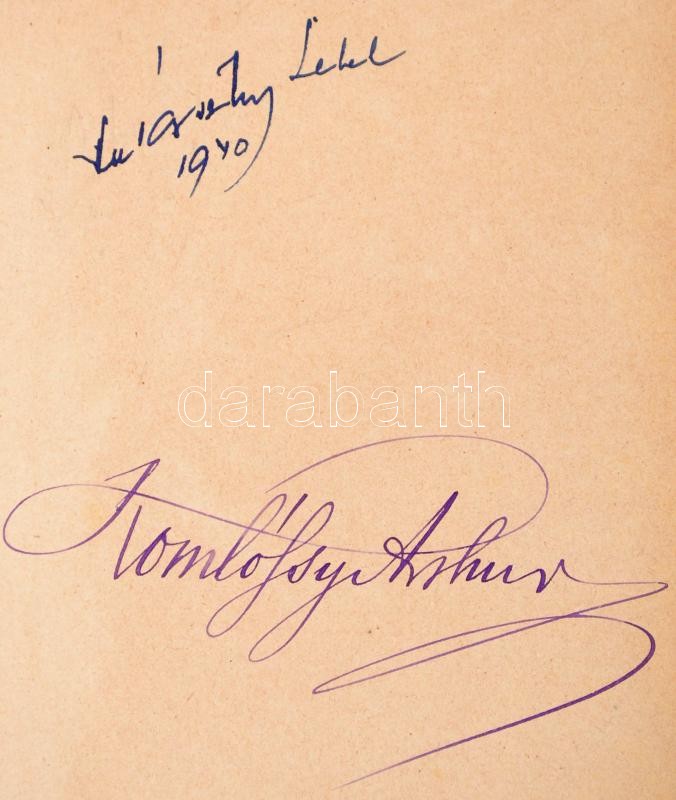 Lehel
1940
darabanth
Komlóssy Arthur